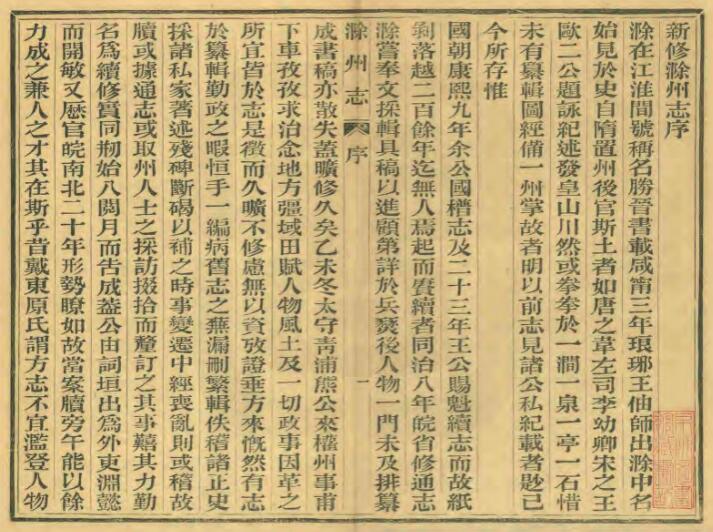 新修滁州志序
滁在江淮間號稱名勝晉書載咸甯三年琅琊王伷師出滁中名
始見於史自隋置州後官斯土者如唐之韋左司李幼卿宋之王
歐二公題詠紀述發皇山川然或拳拳於一澗一泉一亭一石惜
未有纂輯圖經備一州掌故者明以前志見諸公私紀載者尠已
今所存惟
國朝康熙九年余公國𣚴志及二十三年王公賜魁續志而故紙
剝落越二百餘年迄無人焉起而賡續者同治八年皖省修通志
滁嘗奉文採輯具稿以進顧第詳於兵燹後人物一門未及排纂
滁州志 序 一
成書稿亦散失蓋曠修久矣乙未冬太守青浦熊公來權州事甫
下車孜孜求治念地方疆域田賦人物風土及一切政事因革之
所宜皆於志是徵而久曠不修慮無以資攷證垂方來慨然有志
於纂輯勤政之暇恒手一編病舊志之蕪漏刪繁輯佚稽諸正史
採諸私家著述殘碑斷碣以補之時事變遷中經喪亂則或稽故
牘或據通志或取州人士之採訪掇拾而釐訂之其事囏其力勤
名爲續修實同刱始八閱月而告成蓋公由詞垣出爲外吏淵懿
而開敏又歷官皖南北二十年形勢瞭如故當案牘旁午能以餘
力成之兼人之才其在斯乎昔戴東原氏謂方志不宜濫登人物